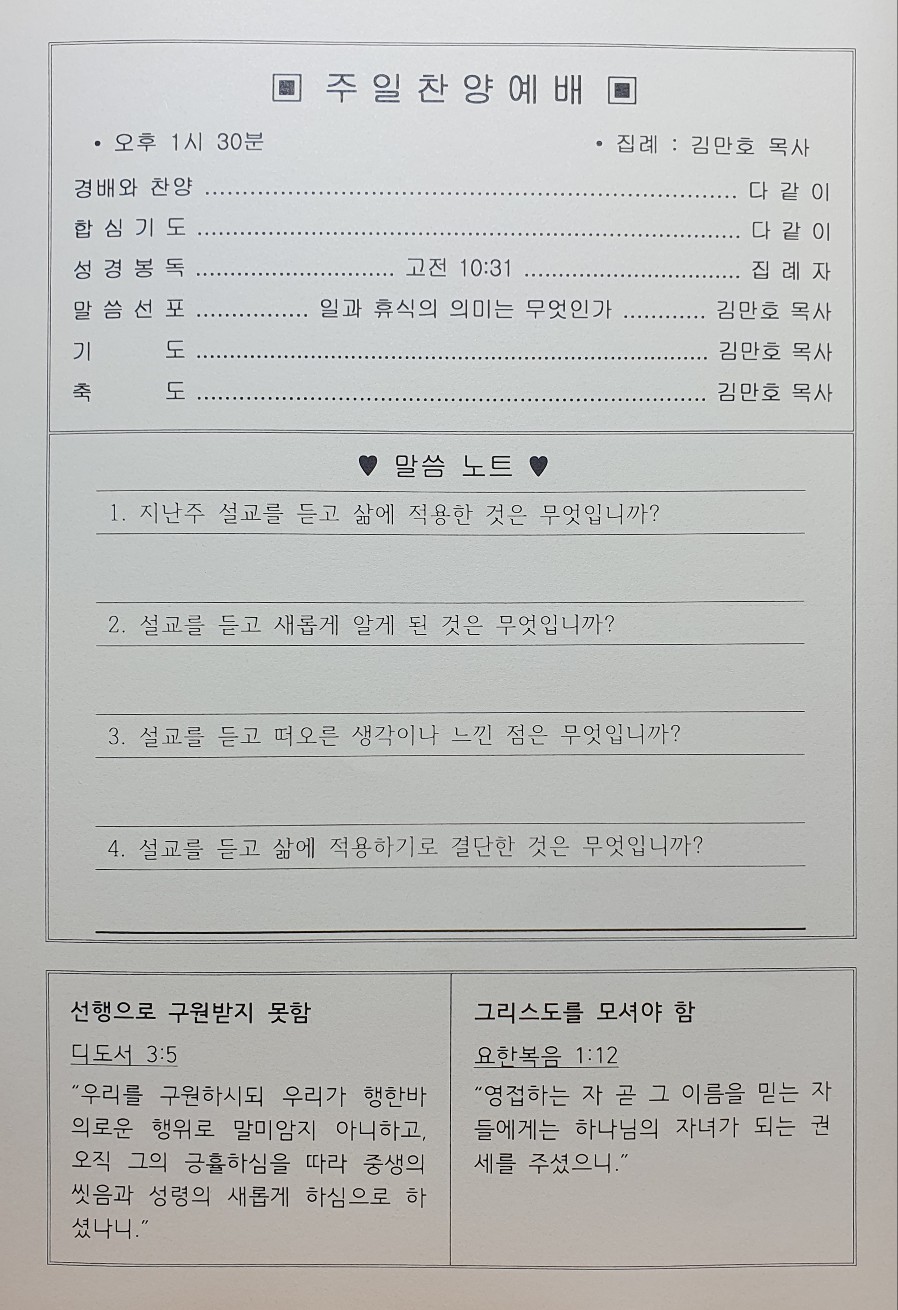 ▣ 주 일 찬 양 예 배 ▣
• 오후 1시 30분 • 집례 : 김만호 목사
경배와 찬양 ........................................ 다 같 이
합 심 기 도 ........................................ 다 같 이
성 경 봉 독 .................... 고전 10:31 .................... 집 례 자
말 씀 선 포 ............... 일과 휴식의 의미는 무엇인가 ............ 김만호 목사
기 도 ........................................ 김만호 목사
축 도 ........................................ 김만호 목사
♥ 말씀 노트 ♥
1. 지난주 설교를 듣고 삶에 적용한 것은 무엇입니까?
2. 설교를 듣고 새롭게 알게 된 것은 무엇입니까?
3. 설교를 듣고 떠오른 생각이나 느낀 점은 무엇입니까?
4. 설교를 듣고 삶에 적용하기로 결단한 것은 무엇입니까?
선행으로 구원받지 못함
디도서 3:5
“우리를 구원하시되 우리가 행한바
의로운 행위로 말미암지 아니하고,
오직 그의 긍휼하심을 따라 중생의
씻음과 성령의 새롭게 하심으로 하
셨나니.”
그리스도를 모셔야 함
요한복음 1:12
“영접하는 자 곧 그 이름을 믿는 자
들에게는 하나님의 자녀가 되는 권
세를 주셨으니.”